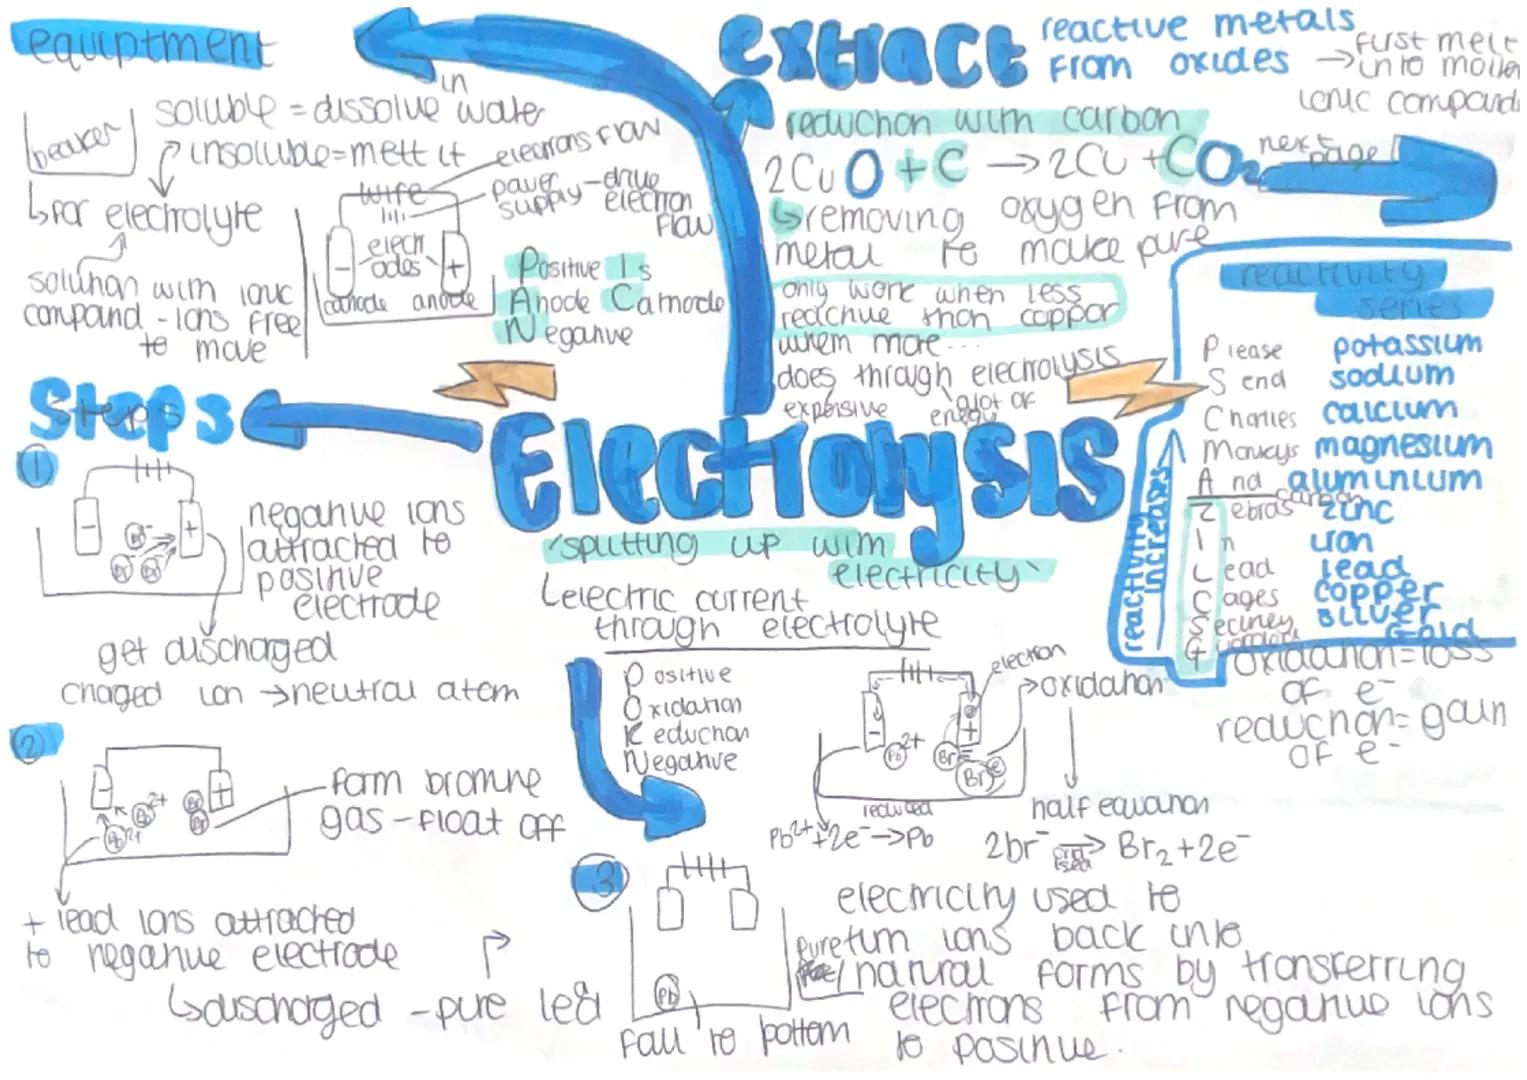 equiptment
beaker
soluble = dissolve in water
insoluble = melt it
↳ for electrolyte
solution with ionic
compound - ions free
to move
electrons flow
wire
power supply - drive electron flow
electrodes
- +
cathode anode
Positive Is
Anode Cathode
Negative
extract reactive metals
from oxides → first melt
into molten
ionic compound
reduction with carbon
2CuO + C → 2Cu + CO₂
next page
↳ removing oxygen from
metal to make pure
only work when less
reactive than coppar
when more....
does through electrolysis
expensive
a lot of
energy
reactivity
series
reactivity increases
Please potassium
Send sodium
Charlies calcium
Monkeys magnesium
And aluminium
carbon
Zebras zinc
In iron
Lead lead
Cages copper
Securley silver
G Gold
oxidation = loss
of e⁻
reduction = gain
of e⁻
Electrolysis
"splitting up with
electricity"
↳ electric current
through electrolyte
Positive
Oxidation
Reduction
Negative
electron
→ oxidation
- +
Pb²⁺ Br Br e
reduced
Pb²⁺ + 2e⁻ → Pb
half equation
2br⁻ → Br₂ + 2e⁻
Steps
1
- +
Br⁻ Br⁻ Br⁻
negative ions
attracted to
positive
electrode
get discharged
chaged ion → neutral atom
2
- +
Pb²⁺ Pb²⁺ Br Br
form bromine
gas - float off
+ lead ions attracted
to negative electrode
↳ discharged - pure lead
3
Pb
fall to bottom
electricity used to
turn ions back into
pure / natural forms by transferring
electrons from negative ions
to positive.